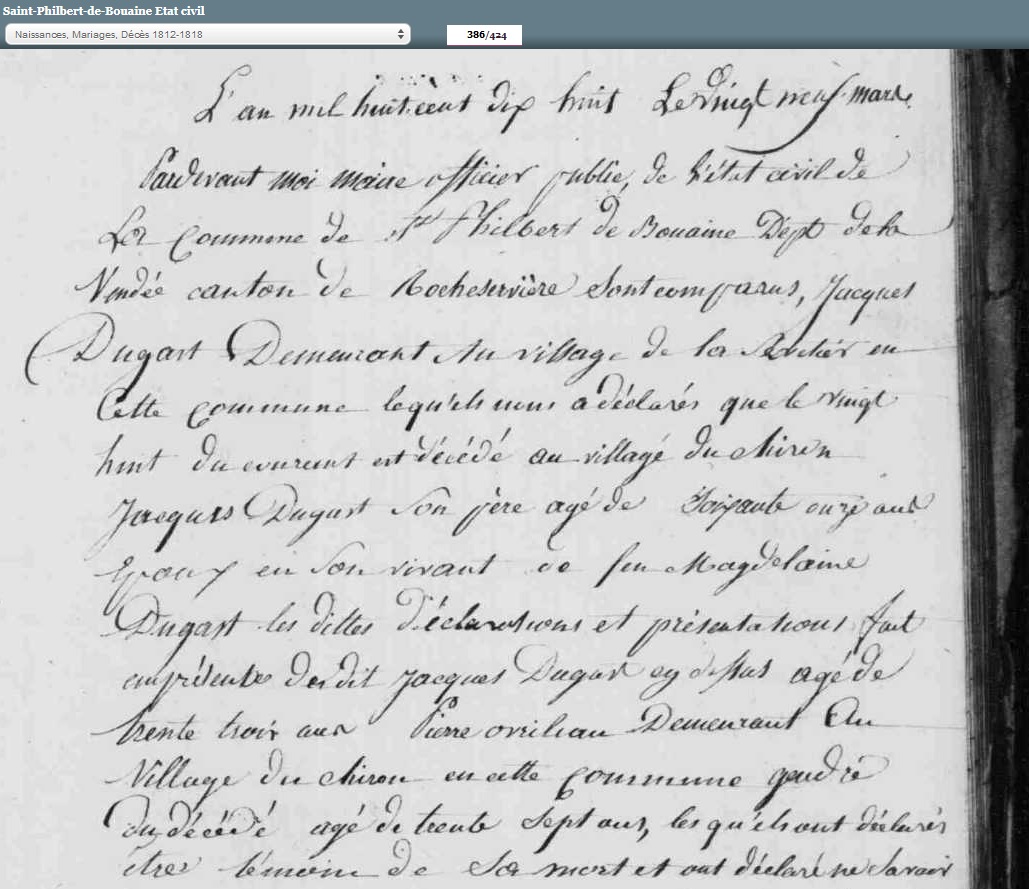 Saint-Philbert-de-Bouaine Etat civil
Naissances, Mariages, Décès 1812-1818
386/424
L'an mil huit cent dix huit Le vingt neuf mars
Pardevant moi maire officier public, de l'état civil de
La Commune de St Philbert de Bouaine Dépt dela
Vendée canton de Rocheservière Sont comparus, Jacques
Dugast Demeurant Au village de la en
Cette commune lequels nous a déclarés que le vingt
huit du courant est décédé au villagé du chiron
Jacques Dugast Son père agé de Soixante onze ans
Epoux en Son vivant de feu Magdelaine
Dugast les dittes déclarations et présentations fait
enprésente dudit Jacques Dugast cy dessus agé de
trente trois ans Pierre Demeurant Au
Village du chiron en cette commune gendre
du décédé agé de trente Sept ans, les qu'els ont déclarés
être témoins de Sa mort et ont déclaré ne Savoir